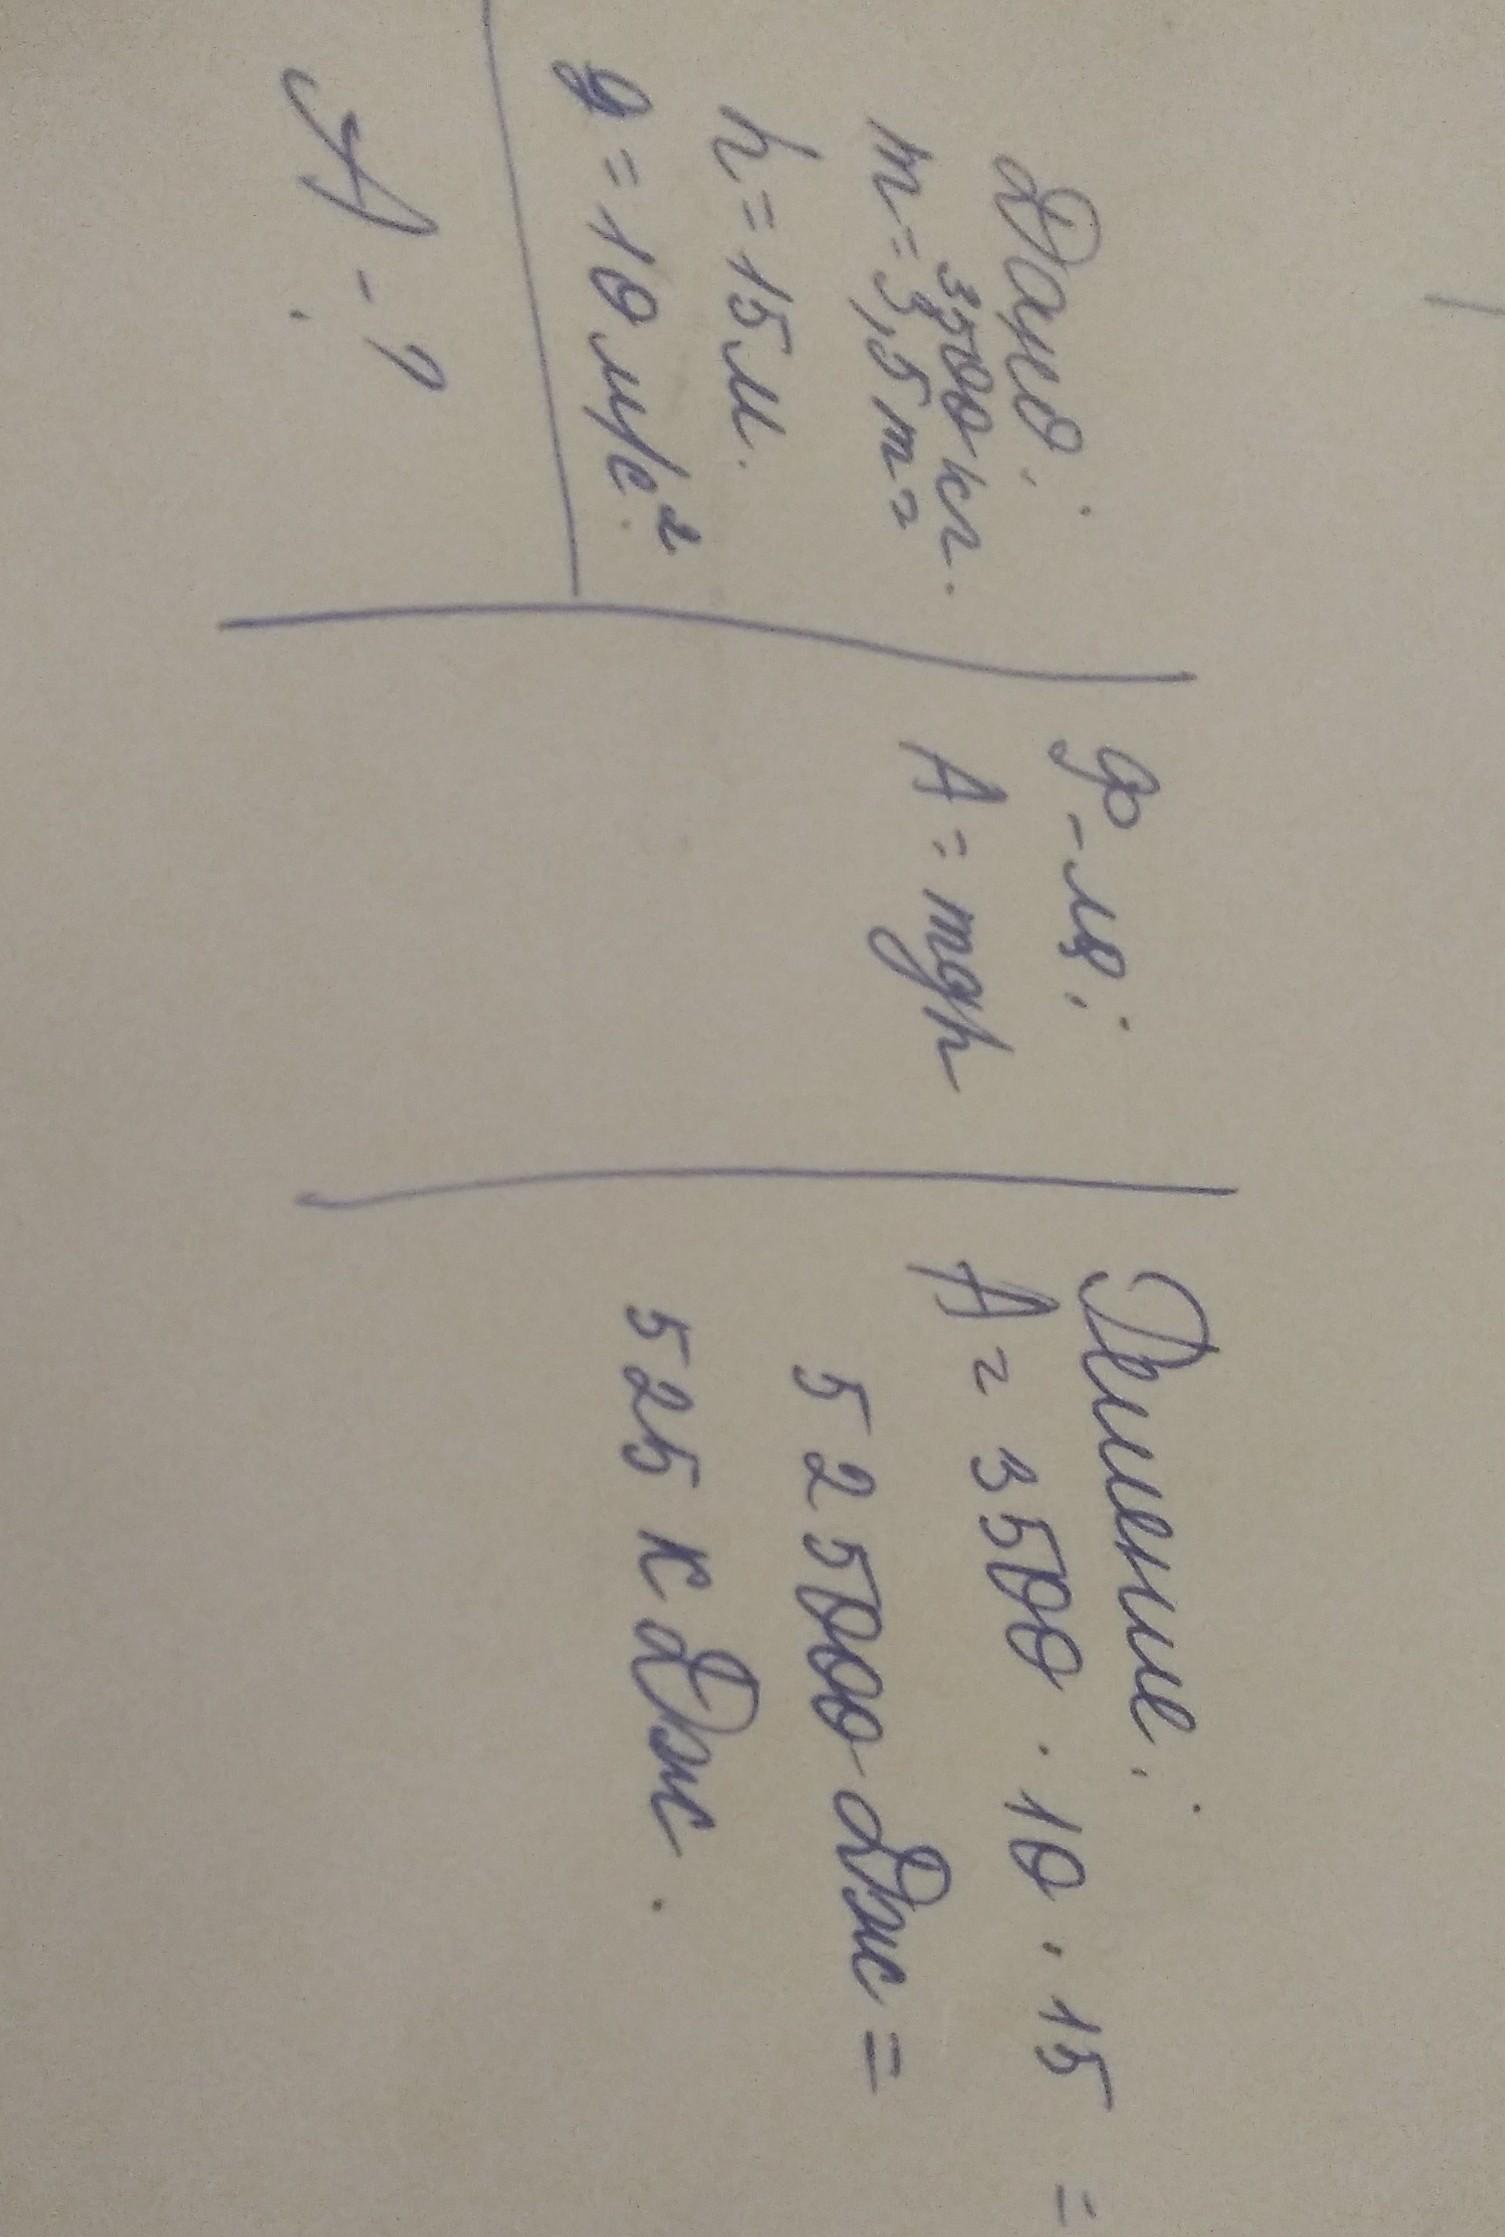 Дано:
m = 3,5 т =
3500 кг.
h = 15 м.
g = 10 м/с²
А - ?
Ф-ла:
A = mgh
Решение:
A = 3500 · 10 · 15 =
525000 Дж =
525 кДж.